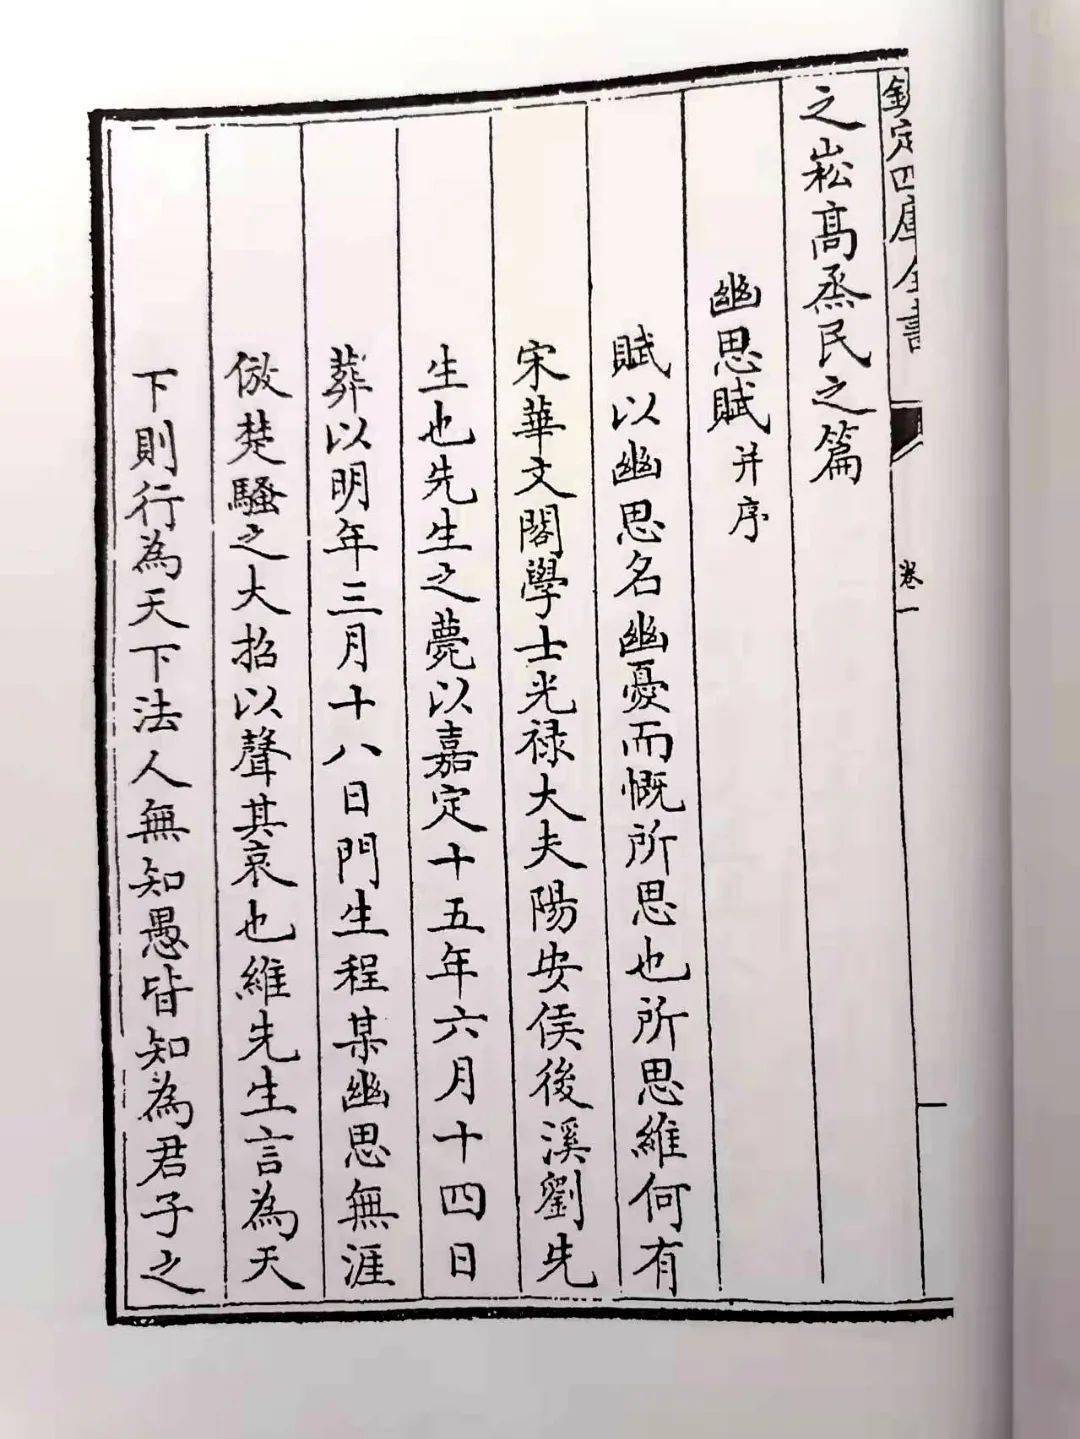 欽定四庫全書
卷一
之崧高烝民之篇
幽思賦并序
賦以幽思名幽憂而慨所思也所思維何有
宋華文閣學士光禄大夫陽安侯後溪劉先
生也先生之薨以嘉定十五年六月十四日
葬以明年三月十八日門生程某幽思無涯
倣楚騷之大招以聲其哀也維先生言為天
下則行為天下法人無知愚皆知為君子之